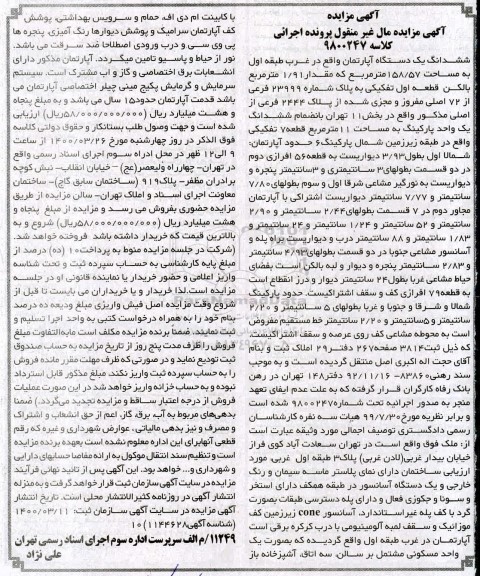 آگهی مزایده
آگهی مزایده مال غیر منقول پرونده اجرائی
کلاسه ۹۸۰۰۲۴۷
ششدانگ یک دستگاه آپارتمان واقع در غرب طبقه اول
به مساحت ۱۵۸/۵۷مترمربع که مقدار۱/۹۱ مترمربع
بالکن قطعه اول تفکیکی به پلاک شماره ۲۳۹۹۹ فرعی
از ۷۲ اصلی مفروز و مجزی شده از پلاک ۲۴۴۴ فرعی از
اصلی مذکور واقع در بخش۱۱ تهران بانضمام ششدانگ
یک واحد پارکینگ به مساحت ۱۱مترمربع قطعه۷ تفکیکی
واقع در طبقه زیرزمین شمال پارکینگ۶ حدود آپارتمان:
شمالا اول بطول۳/۹۳ دیواریست به قطعه۵۶ افرازی دوم
در دو قسمت بطولهای۳ سانتیمتری و ۳سانتیمتر پنجره و
دیواریست به نورگیر مشاعی شرقا اول و سوم بطولهای۷/۸۰
سانتیمتر و ۷/۷۷ سانتیمتر دیواریست اشتراکی با آپارتمان
مجاور دوم در ۷ قسمت بطولهای۲/۴۴ سانتیمتر و ۲/۹۰
سانتیمتر و ۵۲ سانتیمتر و ۱/۲۴ سانتیمتر و ۲۴ سانتیمتر و
۱/۸۳ سانتیمتر و ۸۸ سانتیمتر درب و دیواریست براه پله و
آسانسور مشاعی جنوبا در دو قسمت بطولهای۴/۹۳ سانتیمتر
و ۲/۸۳ سانتیمتر پنجره و دیوار و لبه بالکن است بفضای
حیاط مشاعی غربا بطول۲۴ سانتیمتر دیوار و درز انقطاع است
به قطعه۷۹ افرازی کف و سقف اشتراکیست. حدود پارکینگ
شمالا و شرقا و جنوبا و غربا بطولهای ۵ سانتیمتر و ۲/۲۰
سانتیمتر و ۵سانتیمتر و ۲/۲۰ سانتیمتر خط مستقیم مفروض
است به محوطه مشاعی کف روی عرصه و سقف اشتراکیست.
که ذیل ثبت۳۸۱۴ صفحه۲۶۷ دفتر۲۹ املاک ثبت و بنام
آقای حجت اله اکبری اصل منتقل گردیده است و به موجب
سند رهنی۸۳۸۶۰- ۹۲/۱۱/۱۶ دفتر۱۴۸ تهران در رهن
بانک رفاه کارگران قرار گرفته که به علت عدم ایفای تعهد
منجر به صدور اجرائیه تحت شماره۹۸۰۰۲۴۷ شده است
و برابر نظریه مورخ۹۹/۷/۳۰ هیات سه نفره کارشناسان
رسمی دادگستری توصیف اجمالی مورد وثیقه عبارت است
از: ملک فوق واقع است در تهران سعادت آباد کوی فراز
خیابان بیدار غربی(لادن غربی) پلاک۳ طبقه اول غربی، مورد
ارزیابی ساختمان دارای نمای پلاستر ماسه سیمان و رنگ
خارجی و یک دستگاه آسانسور در طبقه همکف دارای استخر
و سونا و جکوزی فعال و دارای پله دسترسی طبقات بصورت
گرد با کف پله غیراستاندارد، آسانسور cone زیرزمین کف
موزائیک و سقف لمبه آلومینیومی با درب کرکره برقی است
آپارتمان در غرب طبقه اول واقع گردیده که بصورت یک
واحد مسکونی مشتمل بر سالن، سه اتاق، آشپزخانه باز
با کابینت ام دی اف، حمام و سرویس بهداشتی، پوشش
کف آپارتمان سرامیک و پوشش دیوارها رنگ آمیزی، پنجره ها
پی وی سی و درب ورودی اصطلاحا ضد سرقت می باشد.
نور از حیاط و پاسیو تامین میگردد. آپارتمان مذکور دارای
انشعابات برق اختصاصی و گاز و آب مشترک است. سیستم
سرمایش و گرمایش پکیج مینی چیلر اختصاصی آپارتمان می
باشد قدمت آپارتمان حدود۱۵ سال می باشد و به مبلغ پنجاه
و هشت میلیارد ریال (۵۸/۰۰۰/۰۰۰/۰۰۰ریال) ارزیابی
شده است و جهت وصول طلب بستانکار و حقوق دولتی کلاسه
فوق الذکر در روز چهارشنبه مورخ ۱۴۰۰/۰۳/۲۶ از ساعت
۹ الی۱۲ ظهر در محل اداره سوم اجرای اسناد رسمی واقع
در تهران- چهارراه ولیعصر(عج) – خیابان انقلاب- نبش کوچه
برادران مظفر- پلاک۹۱۹ (ساختمان سابق گاج)- ساختمان
معاونت اجرای اسناد و املاک تهران- سالن مزایده از طریق
مزایده حضوری بفروش می رسد و مزایده از مبلغ پنجاه و
هشت میلیارد ریال (۵۸/۰۰۰/۰۰۰/۰۰۰ریال) شروع و به
بالاترین قیمت که خریدار داشته باشد فروخته خواهد شد.
(شرکت در جلسه مزایده منوط به پرداخت ۱۰ (ده) درصد از
مبلغ پایه کارشناسی به حساب سپرده ثبت و تحت شناسه
واریز اعلامی و حضور خریدار یا نماینده قانونی او در جلسه
مزایده است.لذا خریدار و یا خریداران می بایست تا قبل از
شروع وقت مزایده اصل فیش واریزی مبلغ ودیعه ده درصد
بنام خود را به همراه درخواست کتبی به واحد اجرا تسلیم و
ثبت نمایند، ضمنا برنده مزایده مکلف است مابه‌التفاوت مبلغ
فروش را ظرف مدت پنج روز از تاریخ مزایده به حساب صندوق
ثبت تودیع نماید و در صورتی که ظرف مهلت مقرر مانده فروش
را به حساب سپرده ثبت واریز نکند، مبلغ مذکور قابل استرداد
نبوده و به حساب خزانه واریز خواهد شد در این صورت عملیات
فروش از درجه اعتبار ساقط و مزایده تجدید می‌گردد.) ضمنا
بدهی‌های مربوط به آب، برق، گاز، اعم از حق انشعاب و اشتراک
و مصرف و نیز بدهی مالیاتی، عوارض شهرداری و غیره که رقم
قطعی آنهابرای این اداره معلوم نشده است بعهده برنده مزایده
است و تنظیم سند انتقال موکول به ارائه مفاصا حسابهای دارایی
و شهرداری و... خواهد بود، این آگهی پس از تائید نهائی فرآیند
مزایده در سایت آگهی سازمان ثبت قرار خواهد گرفت و به منزله
انتشار آگهی در روزنامه کثیرالانتشار محلی است. تاریخ انتشار
آگهی مزایده در سایت آگهی سازمان ثبت: ۱۴۰۰/۰۳/۱۱
(شناسه آگهی۱۱۴۴۶۲۸)۱۰
۱۱۲۴۹/م الف سرپرست اداره سوم اجرای اسناد رسمی تهران
علی نژاد